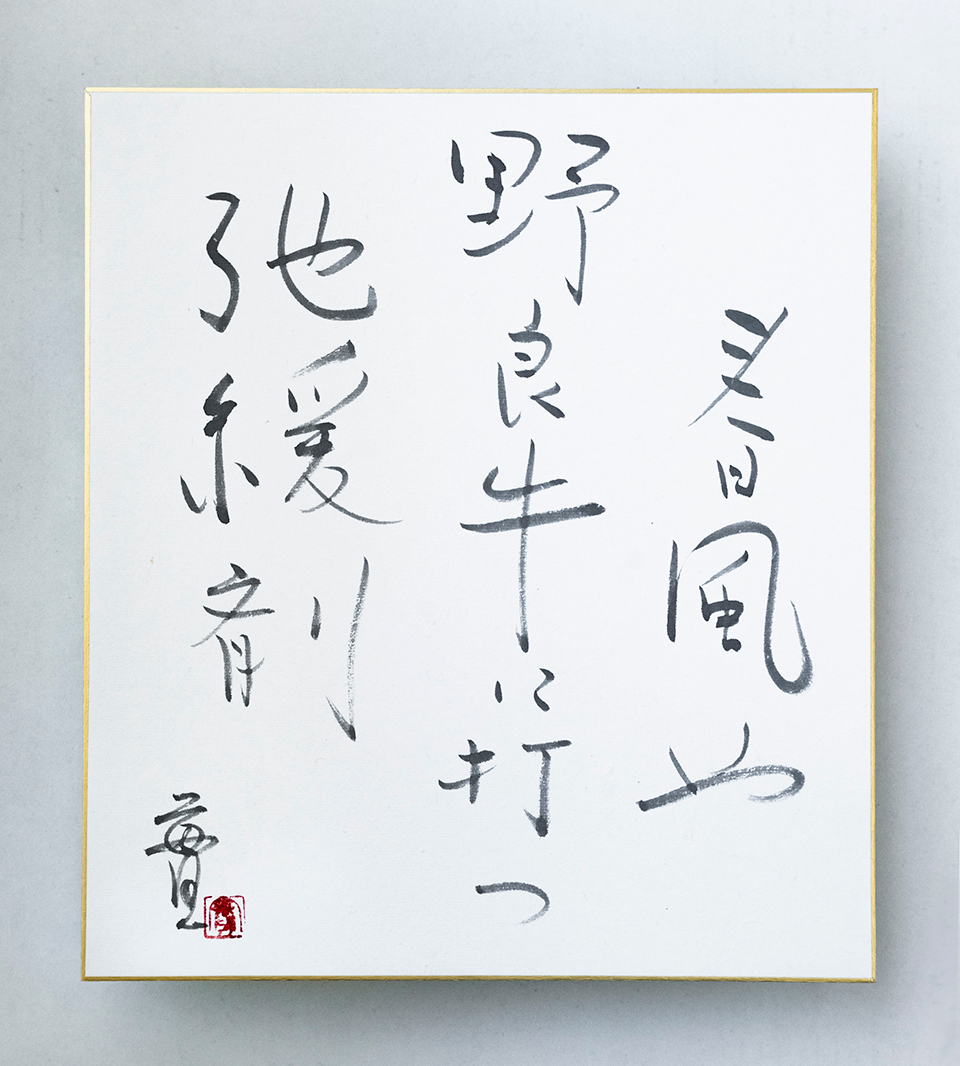 春風や
野良牛に打つ
弛緩剤